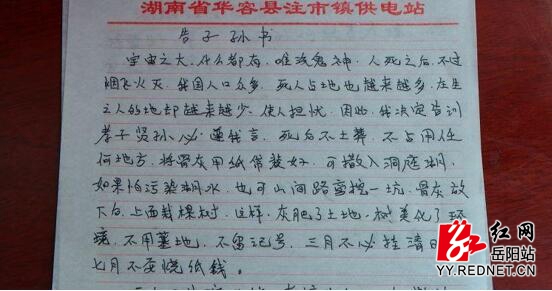 湖南省华容县注市镇供电站
告子孙书
宇宙之大，什么都有，唯没鬼神，人死之后，不过
烟飞火灭，我国人口众多，死人占地也越来越多，在生
之人的地却越来越少，使人担忧，因此，我决定告训
孝子贤孙，必遵我言，死后不土葬，不占用任
何地方，将骨灰用纸袋装好，可撒入洞庭湖，
如果怕污染湖水，也可山间路旁挖一坑，骨灰放
下白，上面栽棵树，这样，灰肥了土地，树美化了环
境，不用墓地，不留记号，三月不必挂清明
七月不要烧纸钱。
红网
岳阳站
YY.REDNET.CN